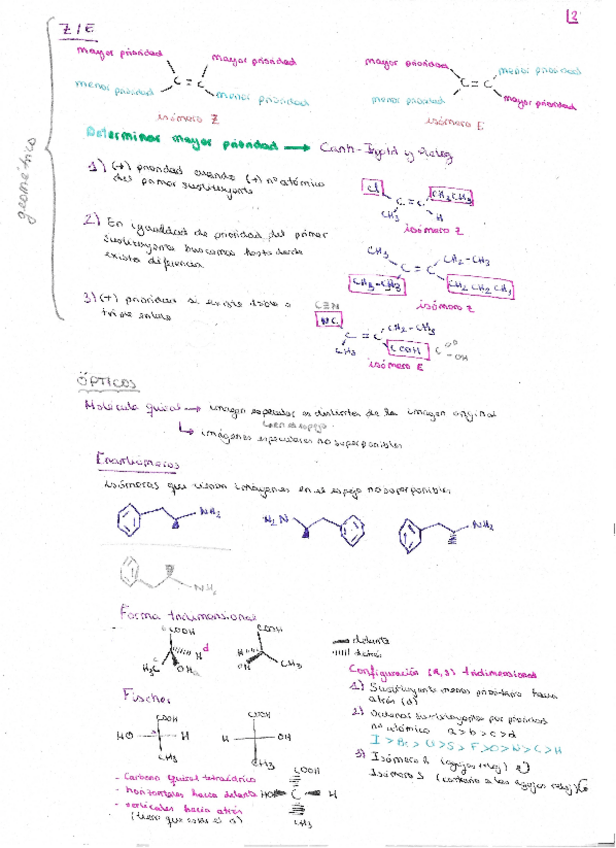 2
Z/E
mayor prioridad
mayor prioridad
C = C
menor prioridad
menor prioridad
isómero Z
mayor prioridad
menor prioridad
C = C
menor prioridad
mayor prioridad
isómero E
geométrico
Determinar mayor prioridad → Cahn-Ingold y Prelog
1) (+) prioridad cuando (+) nº atómico
del primer sustituyente
Cl
CH2CH3
C = C
CH3
H
isómero Z
2) En igualdad de prioridad del primer
sustituyente buscamos hasta donde
exista diferencia
CH3
CH2-CH3
C = C
CH3-CH2
CH2 CH2 CH3
isómero Z
3) (+) prioridad si existe doble o
triple enlace
C≡N
NC
CH2-CH3
C = C
CH3
COOH
C
O
OH
isómero E
ÓPTICOS
Molécula quiral → imagen especular es distinta de la imagen original
en espejo
↳ imágenes especulares no superponibles
Enantiómeros
isómeros que tienen imágenes en el espejo no superponibles
NH2
H2N
NH2
NH2
Forma tridimensional
COOH
H d
H3C
OH
COOH
H
OH
CH3
delante
detrás
Configuración (R,S) tridimensional
1) Sustituyente menos prioritario hacia
atrás (d)
2) Ordenar sustituyentes por prioridad
nº atómico a>b>c>d
I>Br>Cl>S>F>O>N>C>H
3) Isómero R (agujas reloj)
Isómero S (contrario a las agujas reloj)
Fischer
COOH
HO
H
CH3
COOH
H
OH
CH3
- Carbono quiral tetraédrico
- horizontales hacia delante
- verticales hacia atrás
(tiene que estar el d)
COOH
HO
C
H
CH3